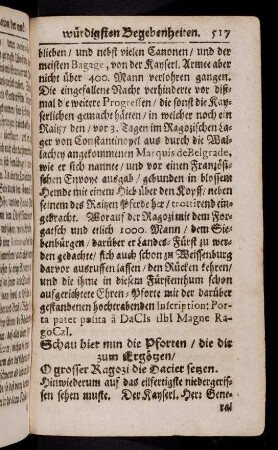 würdigsten Begebenheiten. 517
blieben / und nebst vielen Canonen / und der
meisten Bagage, von der Kayserl. Armee aber
nicht über 400. Mann verlohren gangen.
Die eingefallene Nacht verhinderte vor diß-
mal die weitere Progressen / die sonst die Kay-
serlichen gemacht hätten / in welcher noch ein
Raitz / den / vor 3. Tagen im Ragozischen La-
ger von Constantinopel aus durch die Wal-
lachey angekommenen Marquis de Belgrade,
wie er sich nannte / und vor einen Französi-
schen Envoye ausgab / gebunden in blossem
Hemde mit einem Hieb über den Kopff / neben
seinem des Raitzen Pferde her / trottirend ein-
gebracht. Worauf der Ragozi mit dem For-
gatsch und etlich 1000. Mann / dem Sie-
benbürgen / darüber er Landes-Fürst zu wer-
den gedachte / sich auch schon zu Weissenburg
darvor ausruffen lassen / den Rücken kehren /
und die ihme in diesem Fürstenthum schon
aufgerichtete Ehren-Pforte mit der darüber
gestandenen hochtrabenden Inscription: Por-
ta patet posita â DaCIs ilbI Magne Ra-
goCzI.
Schau hier nun die Pforten / die dir
zum Ergötzen /
O grosser Ragozi die Dacier setzen.
Hinwiederum auf das eilfertigste niedergeris-
sen sehen muste. Der Kayserl. Herr Gene-
ral